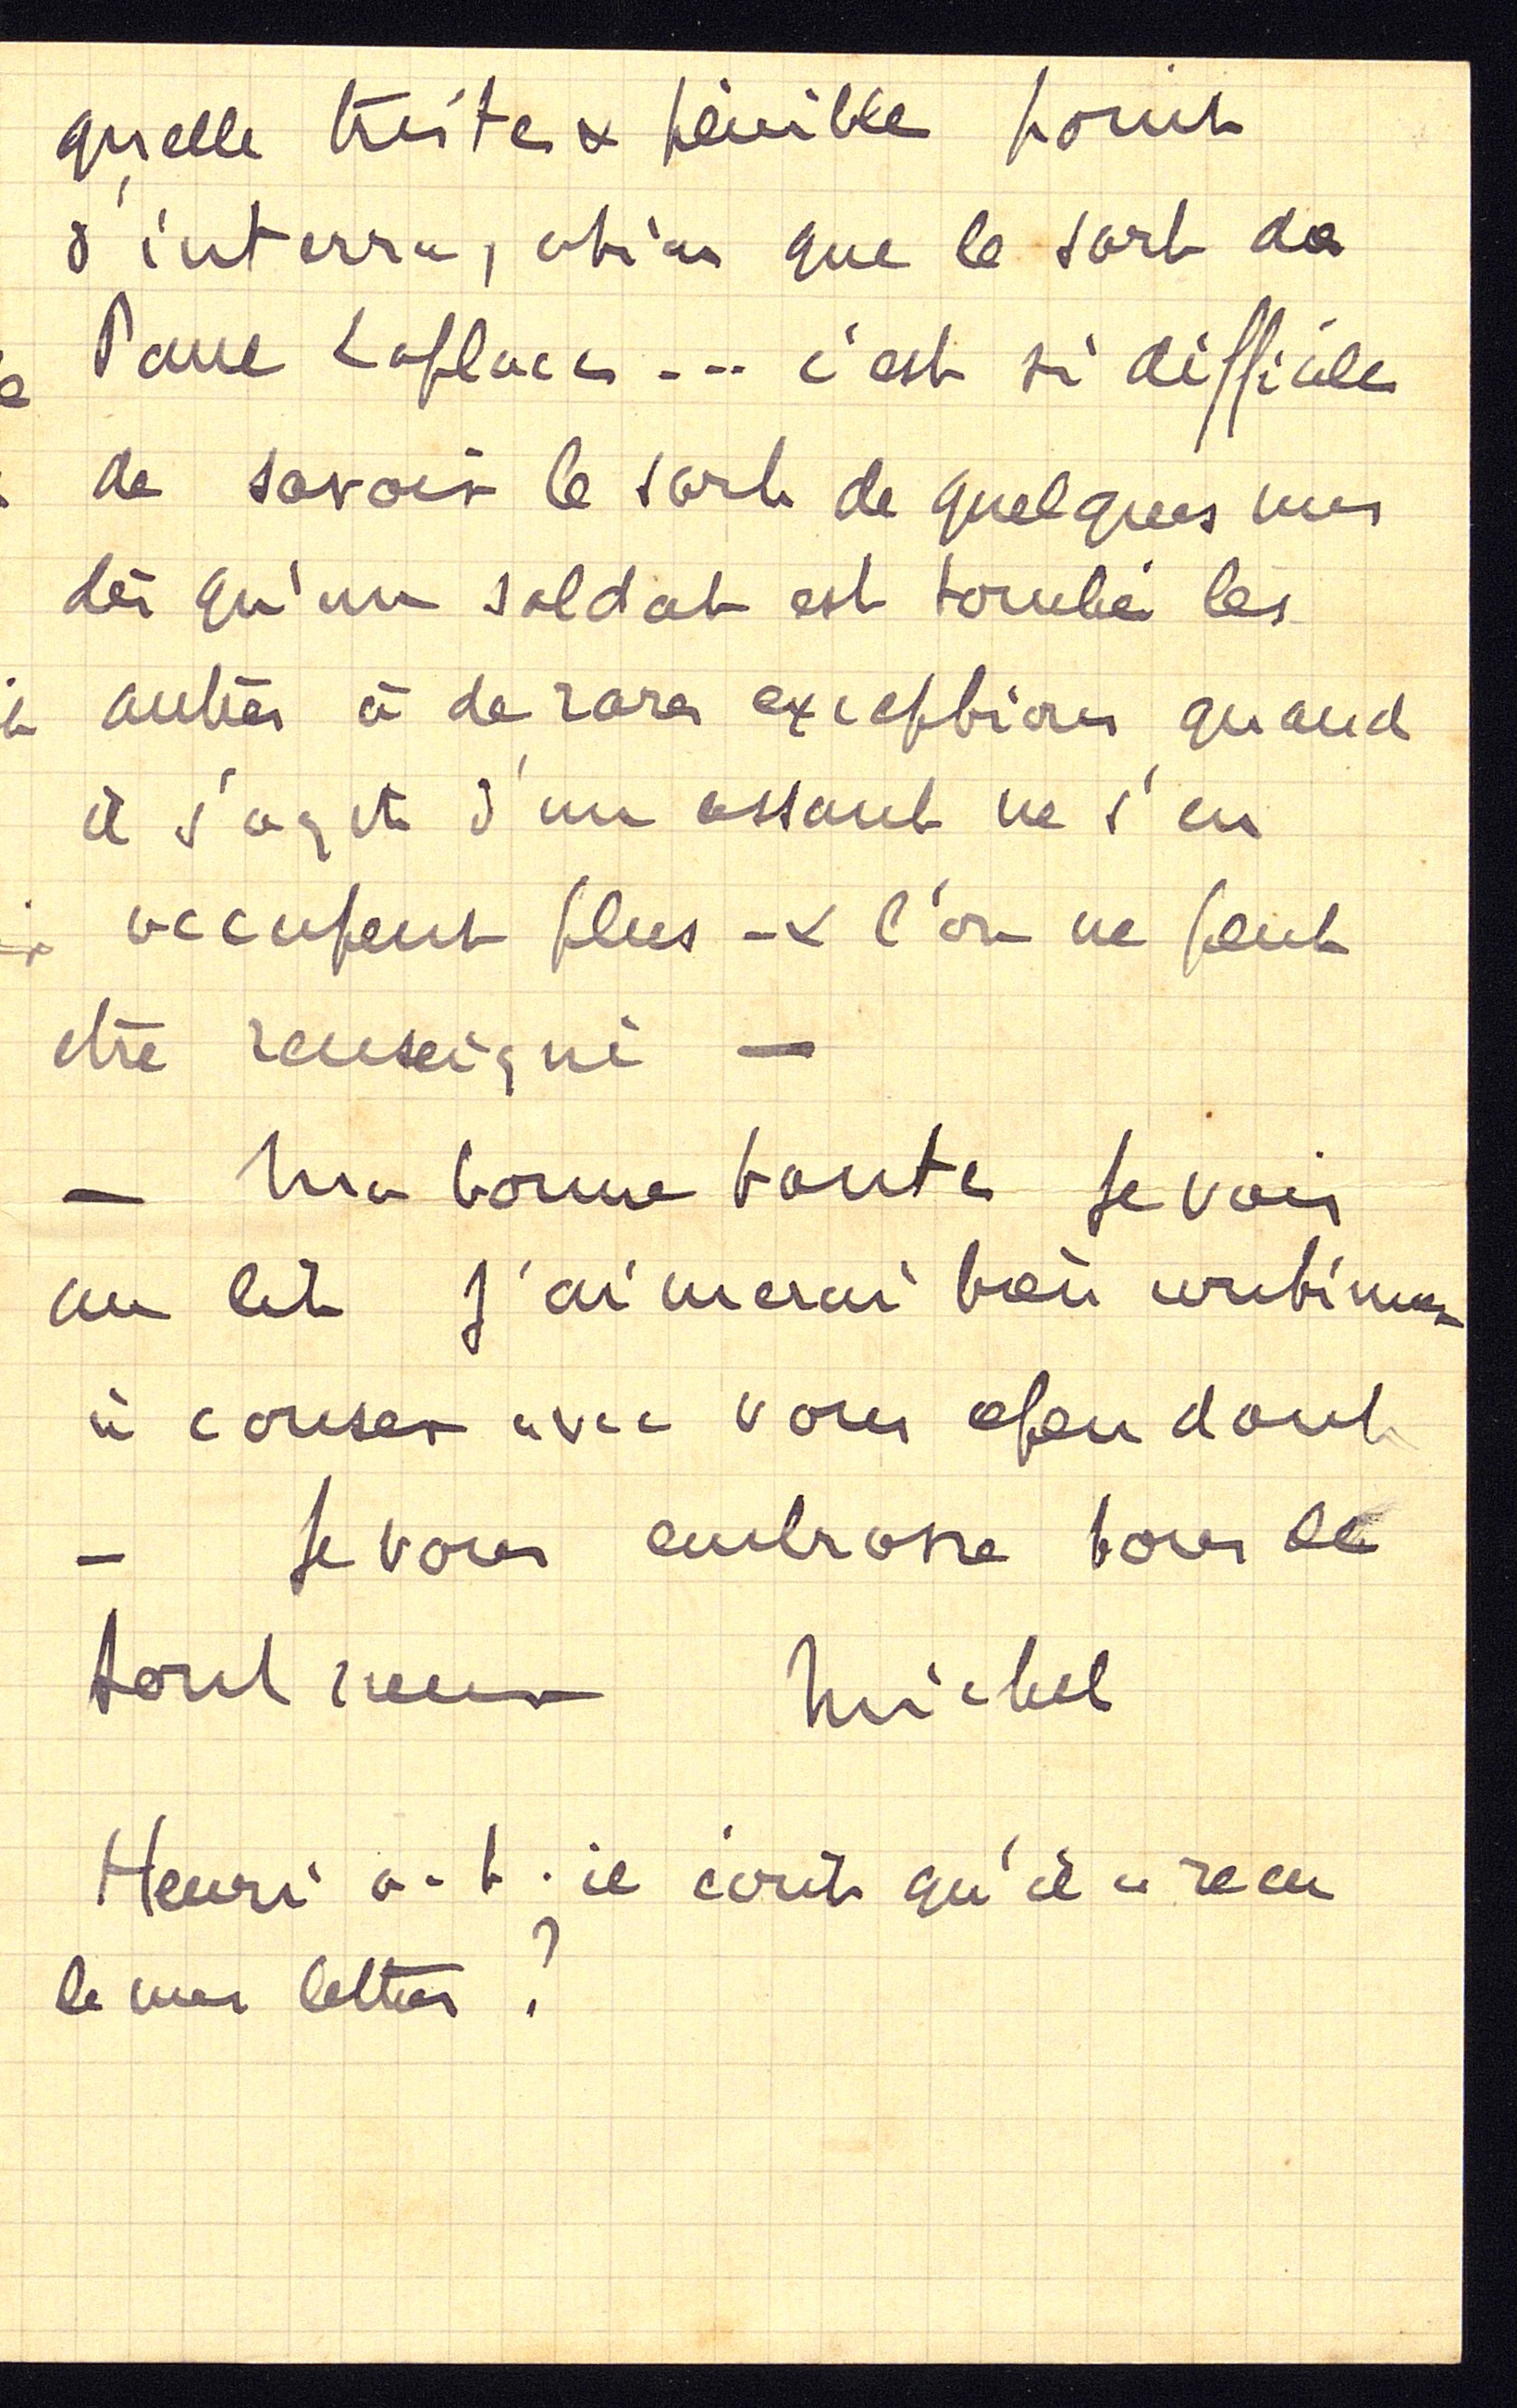 quelle triste & pénible point
d'interrogation que le sort de
Paul Laplace --- c'est si difficile
de savoir le sort de quelques uns
dès qu'un soldat est tombé les
autres à de rares exceptions quand
il s'agit d'un assaut ne s'en
occupent plus - & l'on ne peut
être renseigné —
— Ma bonne tante Je vais
au lit J'aimerai bien continuer
à causer avec vous cependant
— Je vous embrasse tous de
tout cœur Michel
Henri a-t-il écrit qu'il a recu
de mes lettres ?